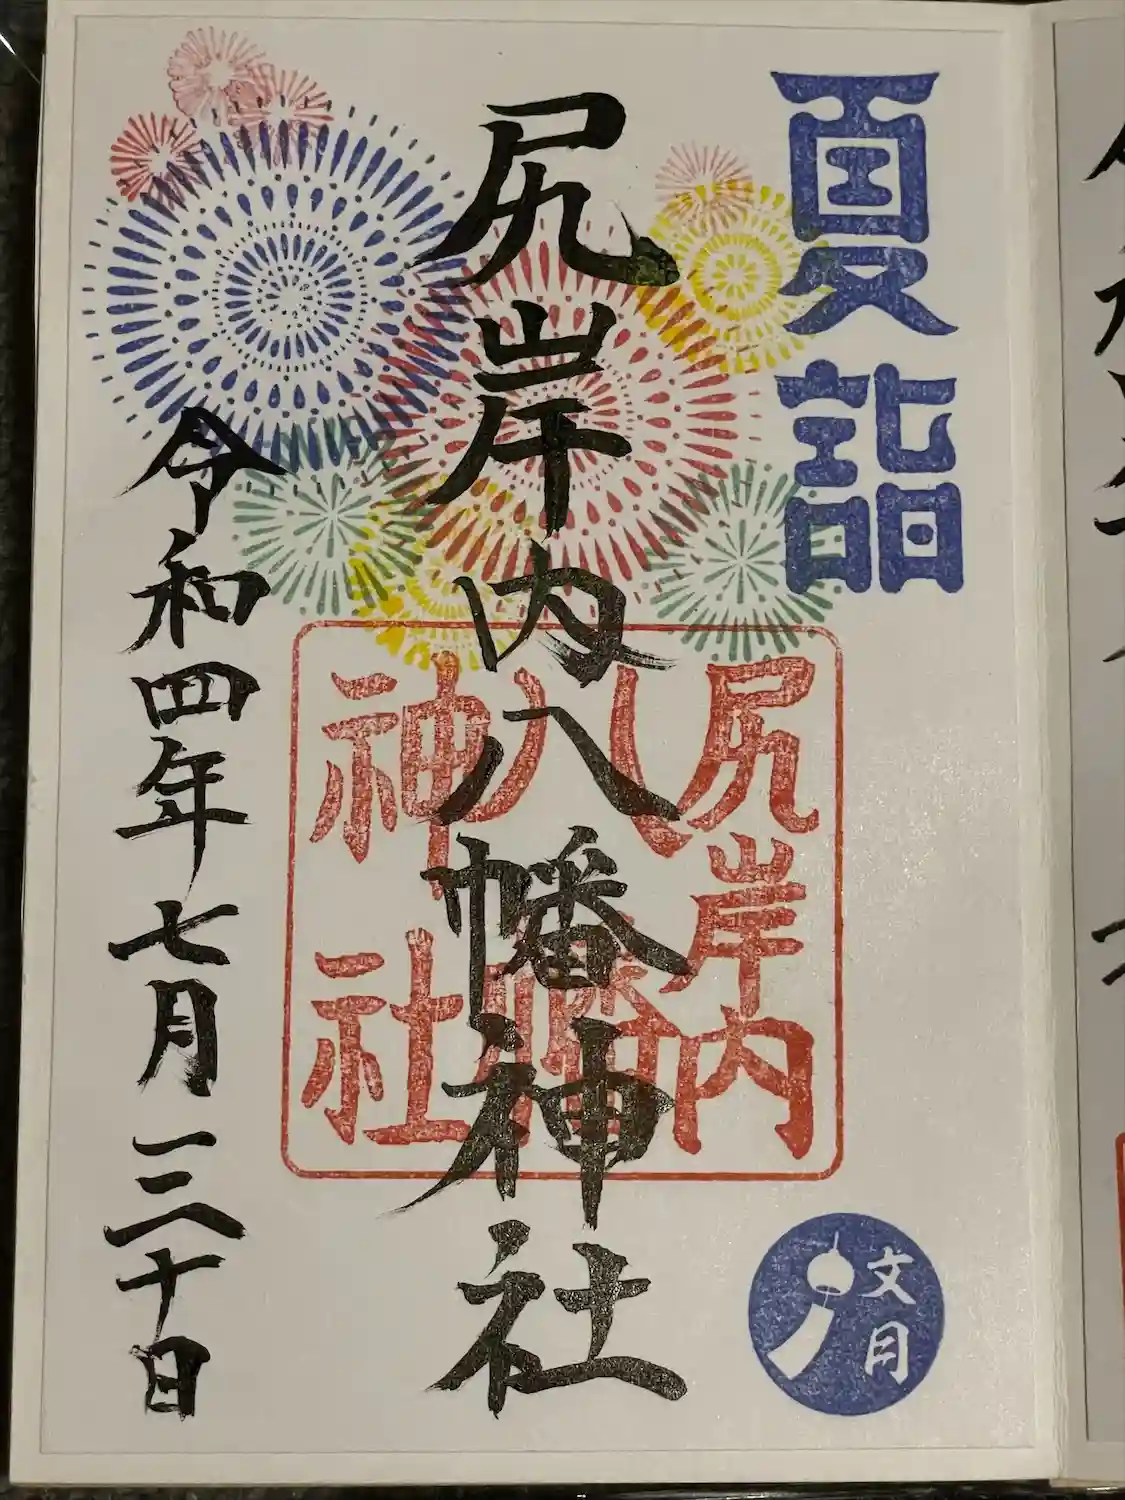 夏詣
尻岸内八幡神社
令和四年七月三十日
尻岸内
八幡
神社
文月